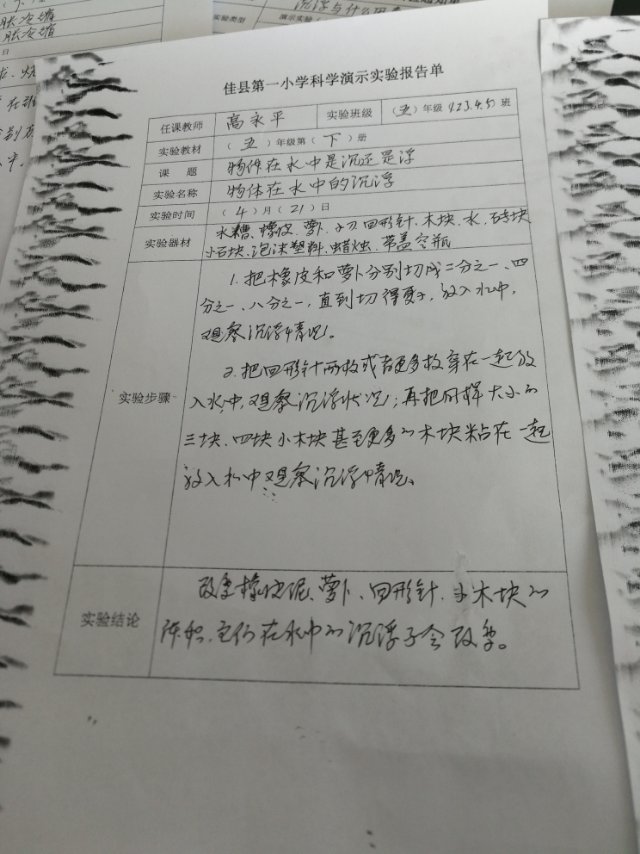 实验类型
胀冷缩
胀冷缩
日
佳县第一小学科学演示实验报告单
任课教师 高永平 实验班级 （五）年级1.2.3.4.5)班
实验教材 （五）年级第（下）册
课 题 物体在水中是沉还是浮
实验名称 物体在水中的沉浮
实验时间 （4）月（21）日
实验器材 水槽、橡皮、萝卜、小刀、回形针、木块、水、砖块
小石块、泡沫塑料、蜡烛、带盖空瓶
实验步骤
1.把橡皮和萝卜分别切成二分之一、四
分之一、八分之一，直到切得更小，放入水中，
观察沉浮情况。
2.把回形针两枚或者更多枚穿在一起放
入水中，观察沉浮状况；再把同样大小的
三块、四块小木块甚至更多的木块粘在一起
放入水中观察沉浮情况。
实验结论
改变橡皮泥、萝卜、回形针、小木块的
体积，它们在水中的沉浮不会改变。